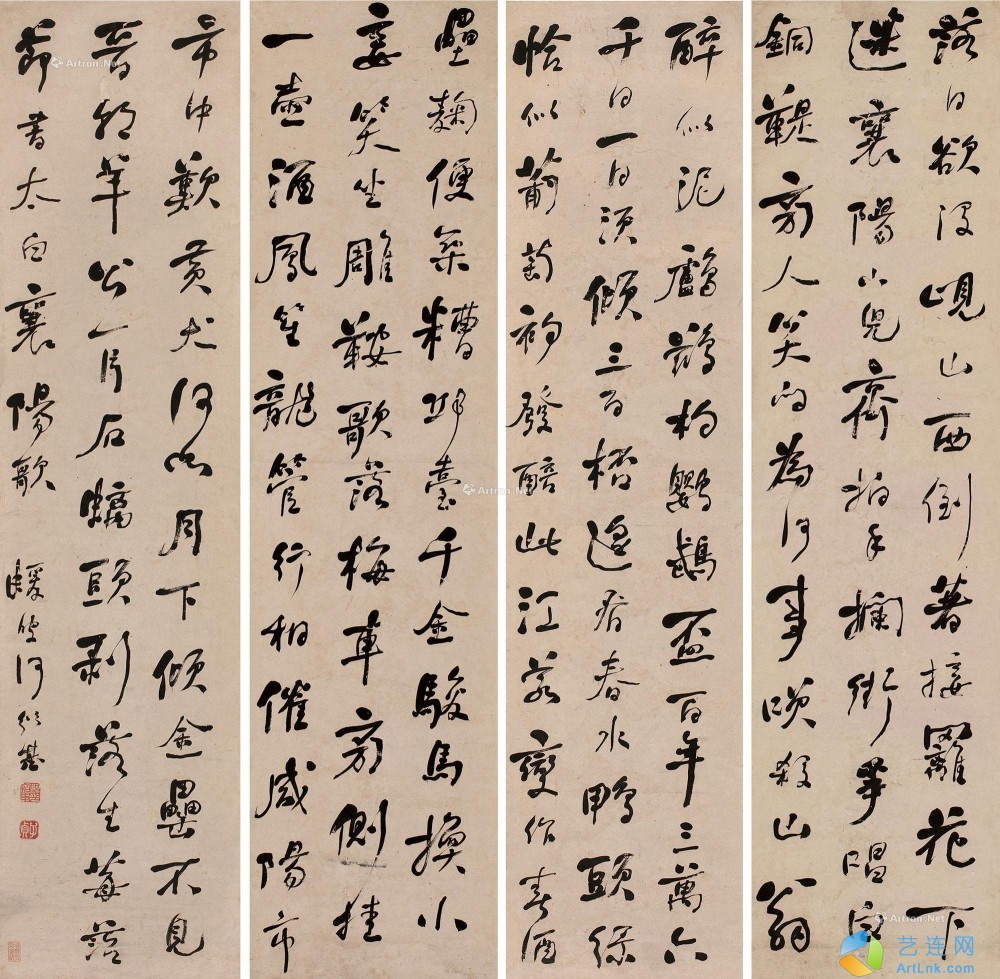 落日欲沒峴山西倒著接䍦花下
迷襄陽小兒齊拍手攔街爭唱白
銅鞮旁人笑問為何事咲殺山翁
醉似泥鸕鶿杓鸚鵡盃百年三萬六
千日一日須傾三百桮遙看春水鴨頭綠
恰似葡萄初發醅此江若變作春酒
壘麴便築糟邱臺千金駿馬換小
妾笑坐雕鞍歌落梅車旁側挂
一壺酒鳳笙龍管行相催咸陽市
市中歎黃犬何如月下傾金罍不見
晉朝羊公一片石螭頭剝落生莓苔
節書太白襄陽歌 蝯叟何紹基
Artron.Net
Artron.Net
Artron.Net
艺连网
ArtLnk.com